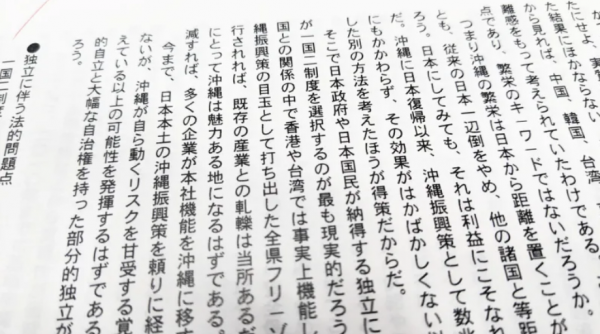 が
たにせよ、実質
た結果にほかならない。
から見れば、中国、韓国、台湾、
難感をもって考えられていたわけである。
点であり、繁栄のキーワードではないだろうか。
つまり沖縄の繁栄は日本から距離を置くことが
とも、従来の日本一辺倒をやめ、他の諸国と等距
ろう。日本にしてみても、それは利益にこそなれ
だ。沖縄に日本復帰以来、沖縄振興策として数兆
にもかかわらず、その効果がはかばかしくない以
した別の方法を考えたほうが得策だからだ。
そこで日本政府や日本国民が納得する独立に
が一国二制度を選択するのが最も現実的だろう
国との関係の中で香港や台湾では事実上機能し
縄振興策の目玉として打ち出した全県フリーゾ
行されれば、既存の産業との軋轢は当所あるだ
にとって沖縄は魅力ある地になるはずである。
減すれば、多くの企業が本社機能を沖縄に移す
今まで、日本本土の沖縄振興策を頼りに経
ないが、沖縄が自ら動くリスクを甘受する覚
えている以上の可能性を発揮するはずである
的自立と大幅な自治権を持った部分的独立が
ろう。
●独立に伴う法的問題点
一国二制度